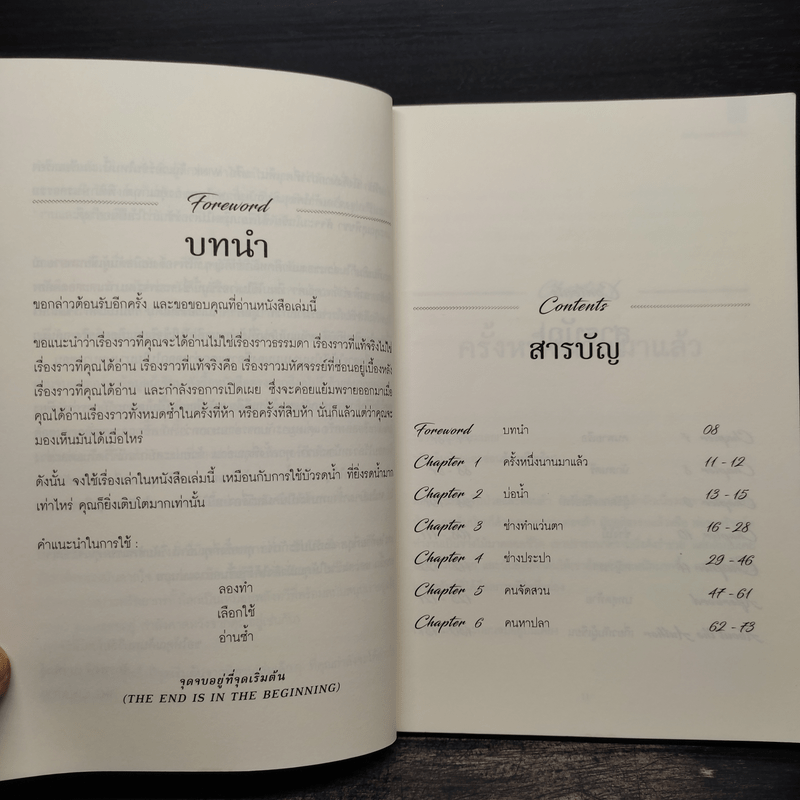 Foreword
บทนำ
ขอกล่าวต้อนรับอีกครั้ง และขอขอบคุณที่อ่านหนังสือเล่มนี้
ขอแนะนำว่าเรื่องราวที่คุณจะได้อ่านไม่ใช่เรื่องราวธรรมดา เรื่องราวที่แท้จริงไม่ใช่
เรื่องราวที่คุณได้อ่าน เรื่องราวที่แท้จริงคือ เรื่องราวมหัศจรรย์ที่ซ่อนอยู่เบื้องหลัง
เรื่องราวที่คุณได้อ่าน และกำลังรอการเปิดเผย ซึ่งจะค่อยแย้มพรายออกมาเมื่อ
คุณได้อ่านเรื่องราวทั้งหมดซ้ำในครั้งที่ห้า หรือครั้งที่สิบห้า นั่นก็แล้วแต่ว่าคุณจะ
มองเห็นมันได้เมื่อไหร่
ดังนั้น จงใช้เรื่องเล่าในหนังสือเล่มนี้ เหมือนกับการใช้บัวรดน้ำ ที่ยิ่งรดน้ำมาก
เท่าไหร่ คุณก็ยิ่งเติบโตมากเท่านั้น
คำแนะนำในการใช้ :
ลองทำ
เลือกใช้
อ่านซ้ำ
จุดจบอยู่ที่จุดเริ่มต้น
(THE END IS IN THE BEGINNING)
Contents
สารบัญ
Foreword บทนำ 08
Chapter 1 ครั้งหนึ่งนานมาแล้ว 11 - 12
Chapter 2 บ่อน้ำ 13 - 15
Chapter 3 ช่างทำแว่นตา 16 - 28
Chapter 4 ช่างประปา 29 - 46
Chapter 5 คนจัดสวน 47 - 61
Chapter 6 คนหาปลา 62 - 73